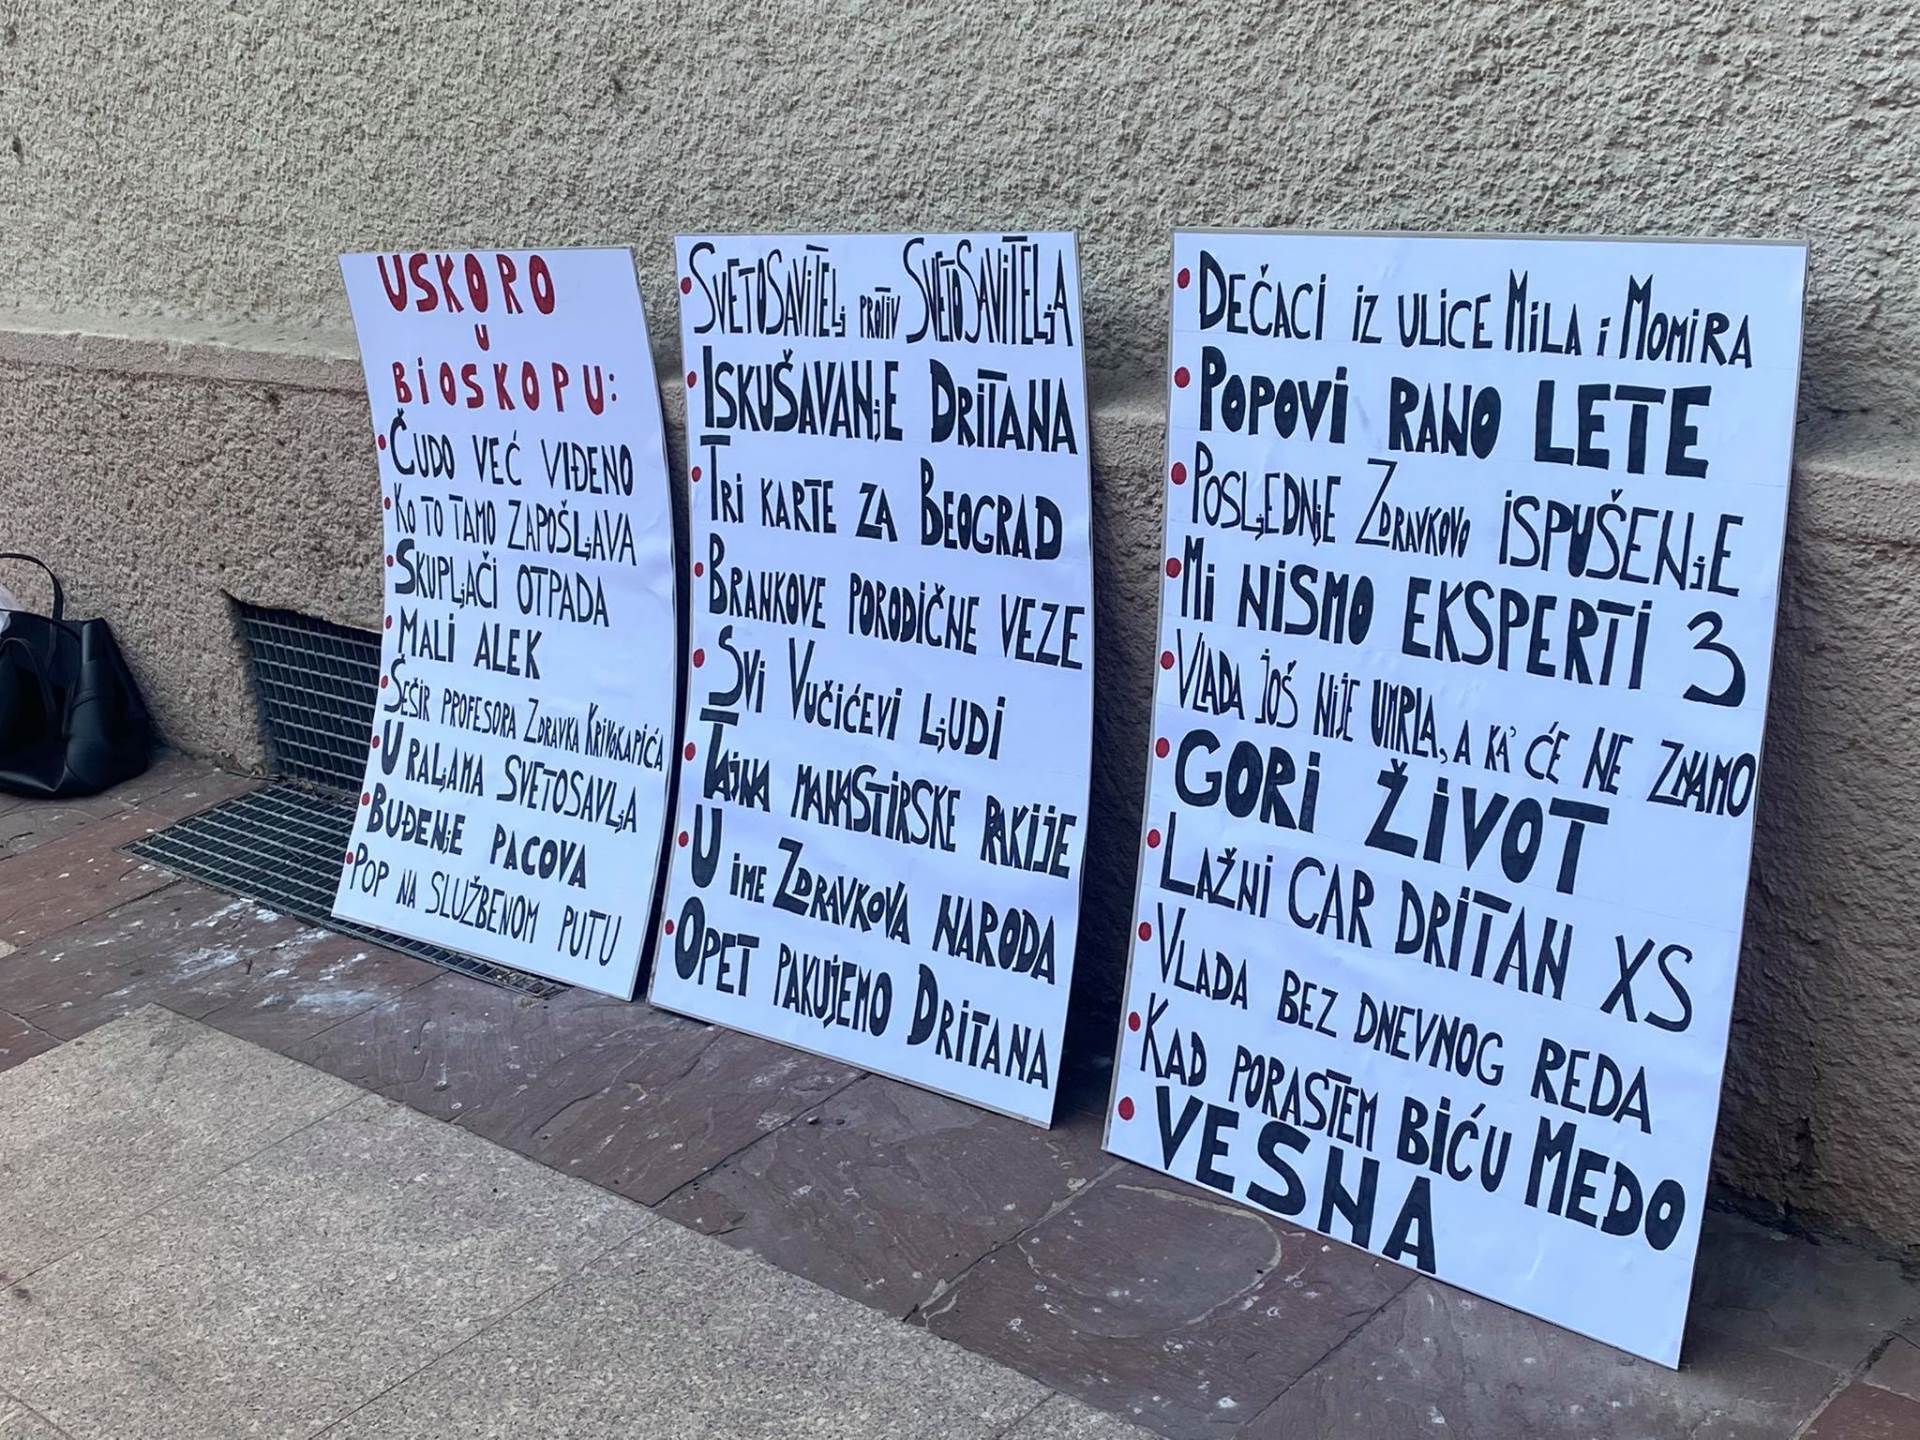 USKORO
U
BIOSKOPU:
• ČUDO VEĆ VIĐENO
• KO TO TAMO ZAPOŠLJAVA
• SKUPLJAČI OTPADA
• MALI ALEK
• ŠEŠIR PROFESORA ZDRAVKA KRIVOKAPIĆA
• U RALJAMA SVETOSAVLJA
• BUĐENJE PACOVA
• POP NA SLUŽBENOM PUTU
• SVETOSAVITELJ PROTIV SVETOSAVITELJA
• ISKUŠAVANJE DRITANA
• TRI KARTE ZA BEOGRAD
• BRANKOVE PORODIČNE VEZE
• SVI VUČIĆEVI LJUDI
• TAJNA MANASTIRSKE RAKIJE
• U IME ZDRAVKOVA NARODA
• OPET PAKUJEMO DRITANA
• DEČACI IZ ULICE MILA I MOMIRA
• POPOVI RANO LETE
• POSLJEDNJE ZDRAVKOVO ISPUŠENJE
• MI NISMO EKSPERTI 3
• VLADA JOŠ NIJE UMRLA, A KA' ĆE NE ZNAMO
• GORI ŽIVOT
• LAŽNI CAR DRITAN XS
• VLADA BEZ DNEVNOG REDA
• KAD PORASTEM BIĆU MEDO
• VESNA